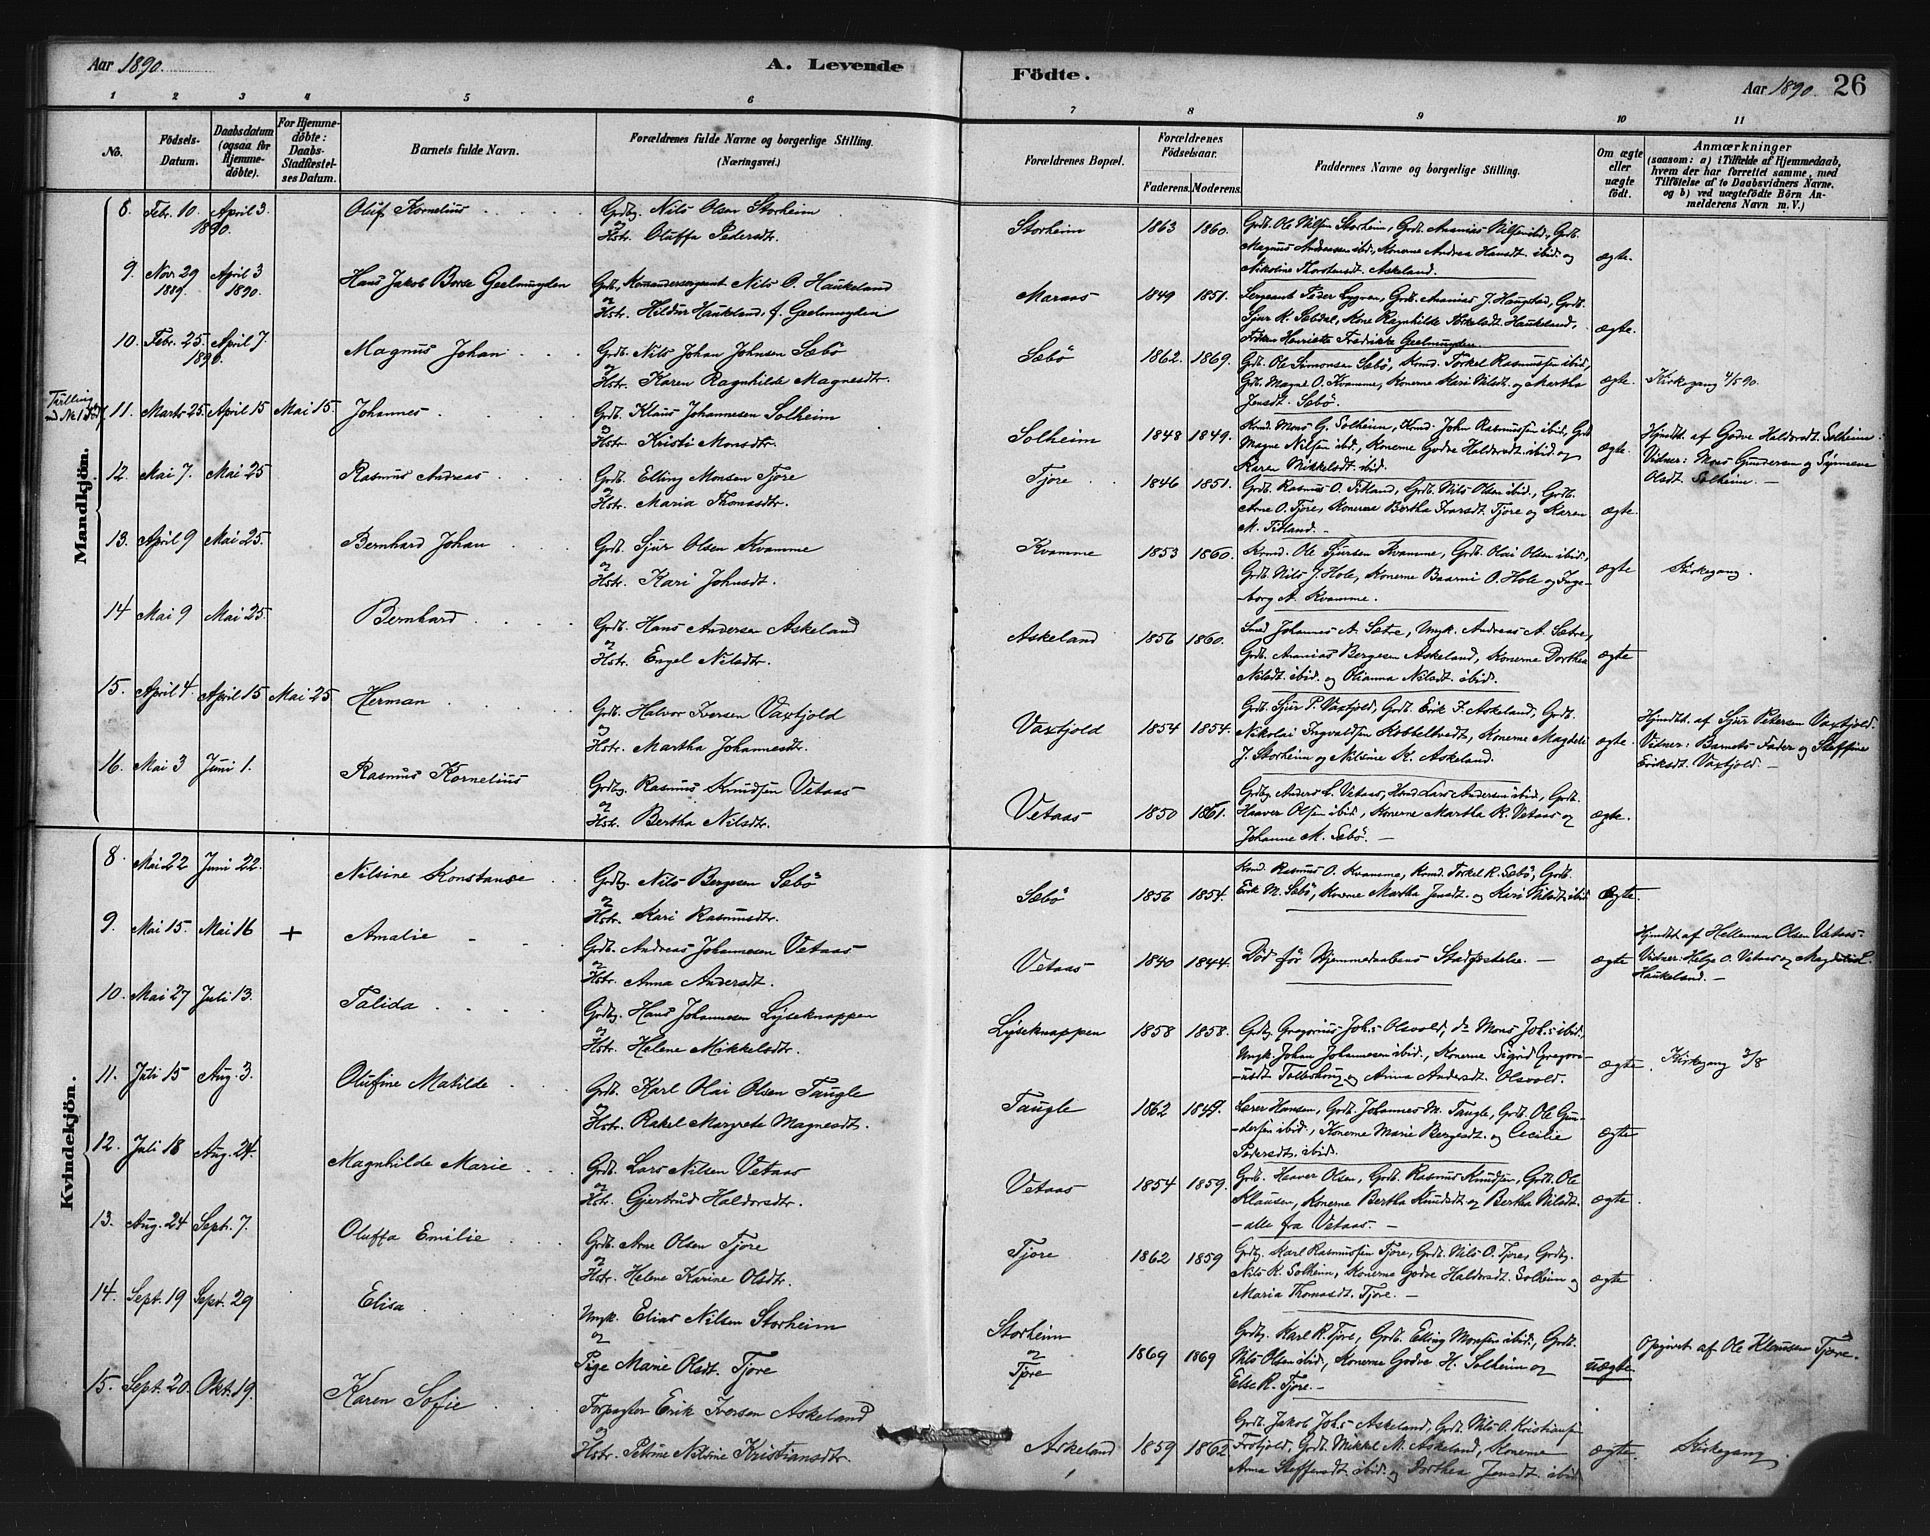 Aar 1890.
A. Levende Födte.
Aar 1890. 26
1 2 3 4 5 6 7 8 9 10 11
No.
Födsels-Datum.
Daabsdatum (ogsaa for Hjemmedöbte).
For Hjemmedöbte: Daabs-Stadfæstelses Datum.
Barnets fulde Navn.
Forældrenes fulde Navne og borgerlige Stilling. (Næringsvei.)
Forældrenes Bopæl.
Forældrenes Födselsaar.
Faderens. Moderens.
Faddernes Navne og borgerlige Stilling.
Om ægte eller uægte födt.
Anmærkninger (saasom: a) i Tilfælde af Hjemmedaab, hvem der har forrettet samme, med Tilföielse af to Daabsvidners Navne, og b) ved uægtefödte Börn Anmelderens Navn m. V.)
Mandkjön.
8. Febr. 10. April 3. 1890. Oluf Kornelius
Grdbg. Nils Olsen Storheim
og Hstr. Oluffa Pedersdt.
Storheim 1863 1860.
Grdb. Ole Nilsen Storheim, Grdb. Ananias Nilsen ibid., Grdb.
Magnus Andreassen ibid., Konerne Andrea Hansdt. ibid. og
Nikoline Thorstensdt. Askeland.
ægte.
9. Nov. 29 1889. April 3 1890. Hans Jakob Borse Geelmuyden
Grdb., Komandersergeant Nils O. Haukeland
og Hstr. Hildur Haukeland, f. Geelmuyden
Maraas 1849 1851.
Sergeant Peder Lygren, Grdb. Ananias J. Haugstad, Grdb.
Sjur K. Sæbdal, Kone Ragnhilde Haukeland,
Fröken Henriette Fredrikke Geelmuyden.
ægte.
10. Febr. 25. April 7. 1890. Magnus Johan
Grdb. Nils Johan Johnsen Sæbö
og Hstr. Karen Ragnhilde Magnesdtr.
Sæbö 1862. 1869.
Grdb. Ole Simonsen Sæbö, Kmd. Torkel Rasmussen ibid.,
Grdb. Magne O. Kvamme, Konerne Kari Nilsdt. og Martha
Jensdt. Sæbö.
ægte. Kirkegang 4/5 90.
Tvilling
11. Marts 25. April 15 Mai 15. Johannes.
Grdb. Klaus Johannesen Solheim
og Hstr. Kristi Monsdtr.
Solheim 1848 1849.
Kmd. Mons G. Solheim, Kmd. John Rasmussen ibid., Grdb.
Magne Nilsen ibid., Konerne Godve Haldorsdt. ibid. og
Karen Mikkelsdt. ibid.
ægte.
Hjmdbt. af Godve Haldorsdt. Solheim.
Vidner: Mons Gundersen og Synneve
Olsdt. Solheim. —
12. Mai 7. Mai 25 Rasmus Andreas
Grdb. Elling Monsen Tjore
og Hstr. Maria Thomasdtr.
Tjore 1846 1851.
Grdb. Rasmus O. Titland, Grdb. Nils Olsen ibid., Grdb.
Arne O. Tjore, Konerne Bertha Ivarsdt. Tjore og Karen
M. Titland. —
ægte.
13. April 9 Mai 25. Bernhard Johan
Grdb. Sjur Olsen Kvamme
og Hstr. Kari Johnsdt.
Kvamme 1853 1860.
Kmd. Ole Sjursen Kvamme, Grdb. Olai Olsen ibid.,
Grdb. Nils J. Hole, Konerne Baarni O. Hole og Inge-
borg A. Kvamme.
ægte Kirkegang.
14 Mai 9 Mai 25. Bernhard
Grdb. Hans Andersen Askeland
og Hstr. Engel Nilsdtr.
Askeland 1856 1860.
Smed Johannes A. Sætre, Ungk. Andreas A. Sætre,
Grdb. Ananias Bergesen Askeland, Konerne Dorthea
Nilsdt. ibid. og Olianna Nilsdt. ibid.
ægte
15. April 4. April 15 Mai 25 Herman
Grdb. Halvor Iversen Vaxtjold
og Hstr. Martha Johannesdtr.
Vaxtjold 1854 1854.
Grdb. Sjur P. Vaxtjold, Grdb. Erik I. Askeland, Grdb.
Nikolai Ingvaldsen Kobbeltvedt, Konerne Magdeli
J. Storheim og Nilsine K. Askeland.
ægte.
Hjmdbt. af Sjur Petersen Vaxtjold.
Vidner: Barnets Fader og Steffine
Eriksdt. Vaxtjold. —
16. Mai 3 Juni 1. Rasmus Kornelius
Grdbg. Rasmus Knudsen Vetaas
og Hstr. Bertha Nilsdtr.
Vetaas 1850 1861.
Grdbg. Anders L. Vetaas, Kmd. Lars Andersen ibid., Grdb.
Haaver Olsen ibid., Konerne Martha R. Vetaas og
Johanne M. Sæbö. —
ægte.
Kvindekjön.
8. Mai 22 Juni 22. Nilsine Konstanse
Grdbg. Nils Bergesen Sæbö
og Hstr. Kari Rasmusdtr.
Sæbö 1856 1854.
Kmd. Rasmus O. Kvamme, Kmd. Torkel R. Sæbö, Grdb.
Erik M. Sæbö, Konerne Martha Jensdt. og Kari Nilsdt. ibid.
ægte.
9. Mai 15. Mai 16 + Amalie
Grdb. Andreas Johannesen Vetaas
og Hstr. Anna Andersdt.
Vetaas 1840 1844.
Död för Hjemmedaabens Stadfæstelse. —
ægte
Hjmdbt. af Helleman Olsen Vetaas.
Vidner: Helge O. Vetaas og L.
Haukeland. —
10. Mai 27 Juli 13. Talida
Grdbg. Hans Johannesen Lyseknappen
og Hstr. Helene Mikkelsdtr.
Lyseknappen 1858 1858.
Grdbg. Gregorius Johs. Olsvold, do Mons Johs. ibid.
Ungk. Johan Johannesen ibid., Konerne Sigrid Gregori-
usdt. Tolleshoug og Anna Andersdt. Olsvold.
ægte. Kirkegang 3/8
11. Juli 15 Aug. 3. Olufine Matilde
Grdb. Karl Olai Olsen Taugle
og Hstr. Rakel Margrete Magnesdt.
Taugle 1862 1849.
Lærer Hansen, Grdb. Johannes M. Taugle, Grdb. Ole Gun-
dersen ibid., Konerne Marie Bergesdt. og Cecilie
Pedersdt. ibid.
ægte
12. Juli 18 Aug. 24. Magnhilde Marie
Grdb. Lars Nilsen Vetaas
og Hst. Gjertrud Haldorsdtr.
Vetaas 1854 1859.
Grdb. Haaver Olsen, Grdb. Rasmus Knudsen, Grdb. Ole
Klausen, Konerne Bertha Knudsdt. og Bertha Nilsdt.
— alle fra Vetaas. —
ægte
13. Aug. 24 Sept. 7. Oluffa Emilie
Grdb. Arne Olsen Tjore
og Hstr. Helene Karine Olsdtr.
Tjore 1862 1859
Grdbg. Karl Rasmussen Tjore, Grdb. Nils O. Tjore, Grdbg.
Nils K. Solheim, Konerne Godve Haldorsdt. Solheim og
Maria Thomasdt. Tjore. —
ægte
14. Sept. 19 Sept. 29 Elisa
Ungk. Elias Nilsen Storheim
og Pige Marie Olsdt. Tjore
Storheim og Tjore 1869 1869
Grdbg. Karl R. Tjore, Grdb. Elling Monsen ibid., Grdb.
Nils Olsen ibid., Konerne Godve H. Solheim og
Else R. Tjore. —
uægte Opgivet af Ole Klausen Tjore.
15. Sept. 20. Okt. 19. Karen Sofie
Forpagter Erik Iversen Askeland
og Hstr. Petrine Nilsine Kristiansdtr.
Askeland 1859 1862
Grdb. Jakob Johs. Askeland, Grdb. Nils O. Kristiansen
Frotjold, Grdb. Mikkel M. Askeland, Konerne
Anna Steffensdt. ibid. og Dorthea Jensdt. ibid.
ægte. Kirkegang.